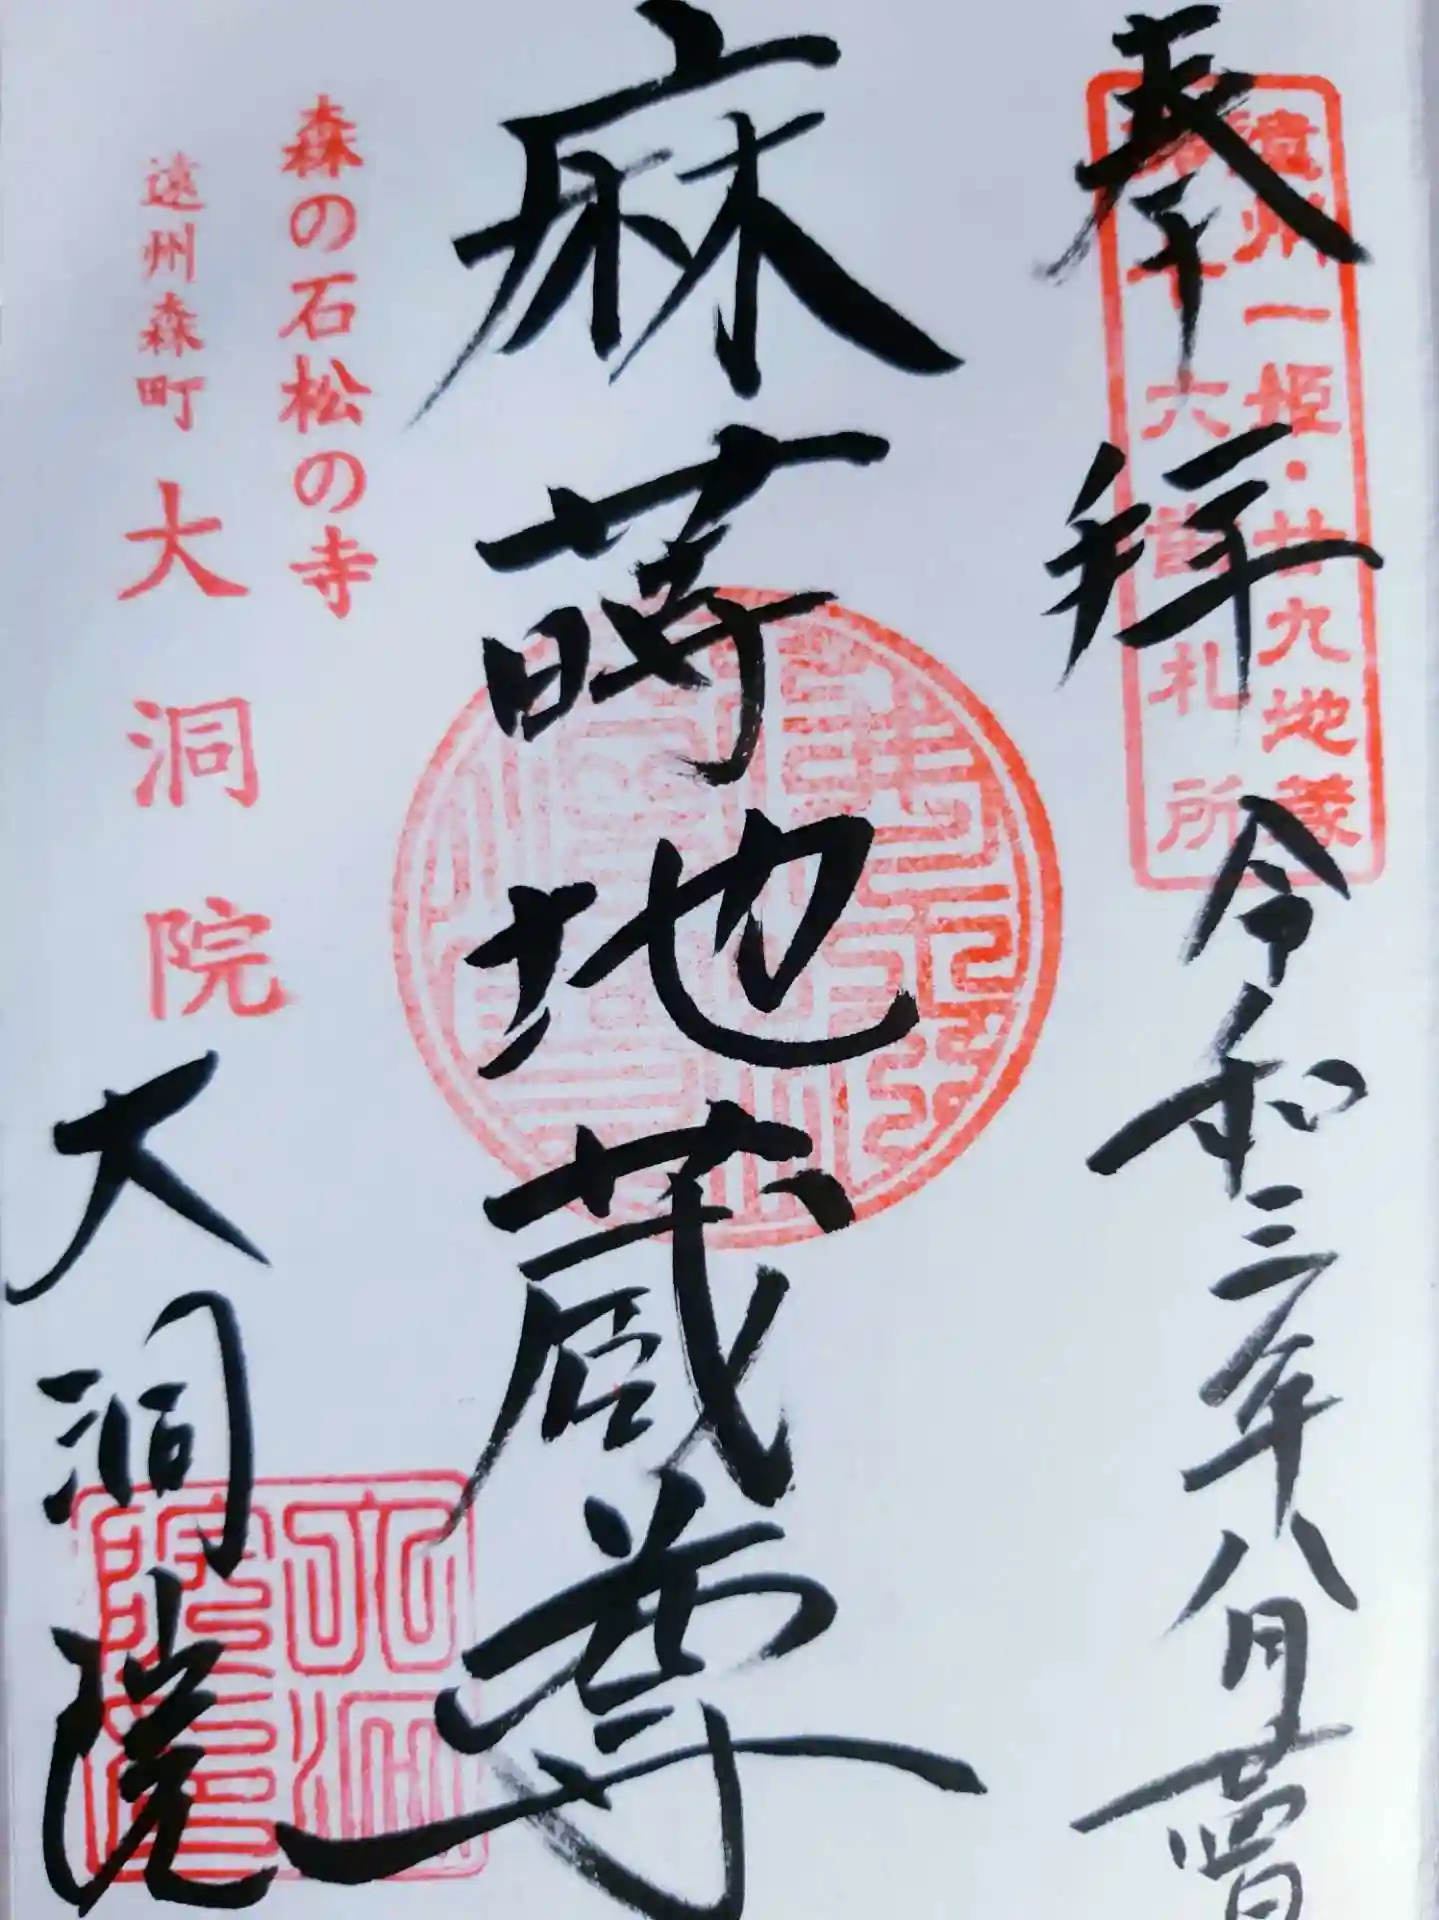 奉拜
遠州一姫・廿九地蔵
第十六番札所
令和三年八月
麻蒔地蔵尊
森の石松の寺
遠州森町 大洞院
大洞院